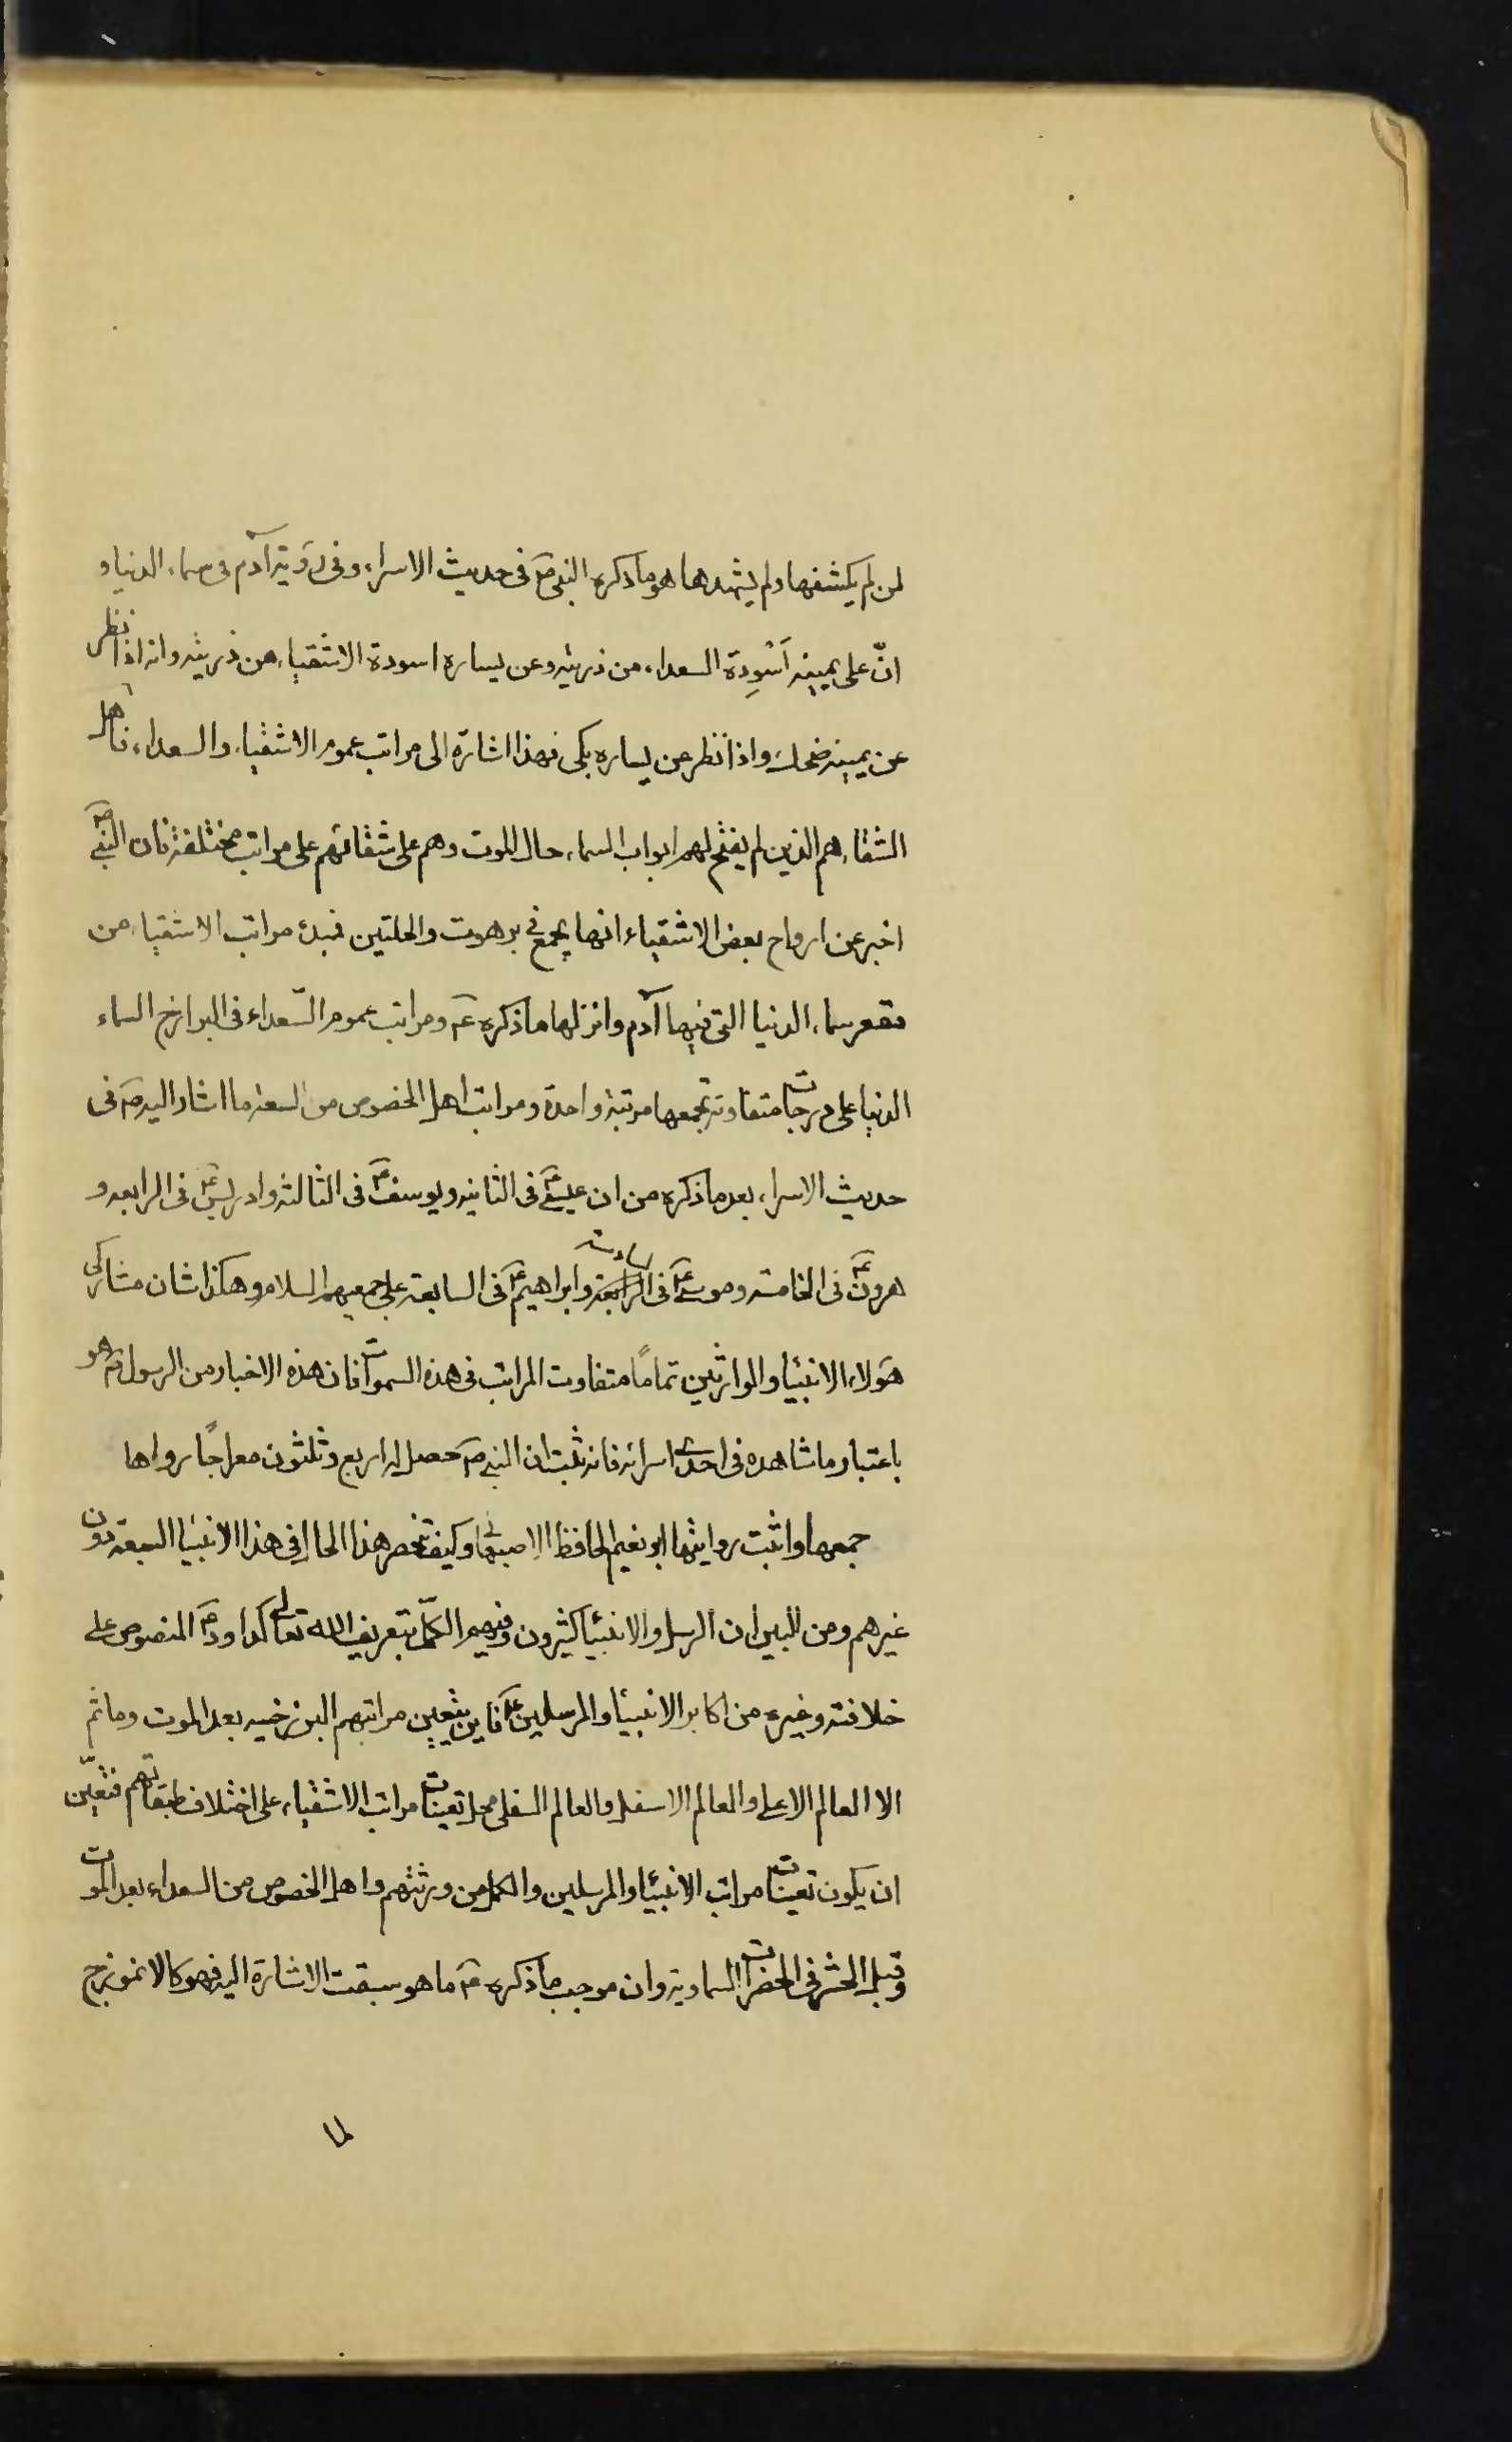 لمن لم يكشفها ولم يشهدها هو ما ذكره النبى صم فى حديث الاسراء وفى رؤية آدم فى سماء الدنيا و
انّ على يمينه اَسْوِدة السعداء من ذريته وعن يساره اسودة الاشقياء من ذريته وانه اذا نظر
عن يمينه ضحك واذا نظر عن يساره بكى فهذا اشارة الى مراتب عموم الاشقياء والسعداء فاهل
الشقاء هم الذين لم يفتح لهم ابواب السماء حال الموت وهم على شقائهم على مراتب مختلفة فان النبى صم
اخبر عن ارواح بعض الاشقياء انها يجمع فى برهوت والحلتين فبدئ مراتب الاشقياء من
مقعر سماء الدنيا التى فيها آدم وانزلها ما ذكره عم ومراتب عموم السّعداء فى البرازخ السماء
الدنيا على درجات متفاوتة تجمعها مرتبة واحدة ومراتب اهل الخصوص من السعداء ما اشار اليه صم فى
حديث الاسراء بعد ما ذكره من ان عيسى عم فى الثانيه ويوسف عم فى الثالثه وادريس عم فى الرابعه و
هرون عم فى الخامسه وموسى عم فى السادسة وابراهيم عم فى السابعة على جميعهم السلام وهكذا شان مشاركى
هؤلاء الانبياء والوارثين تمامًا متفاوت المراتب فى هذه السموات فان هذه الاخبار من الرسول صم هو
باعتبار ما شاهده فى احدى اسرائه فانه ثبت ان النبى صم حصل له اربع وثلثون معراجًا رواها
جمعها واثبت روايتها ابو نعيم الحافظ الاصبهانى وكيف تنحصر هذا الحال فى هذا الانبياء السبعة دون
غيرهم ومن البين ان الرسل والانبياء كثيرون وفيهم الكمّل بتعريف الله تعالى كداود عم المنصوص على
خلافته وغيره من اكابر الانبياء والمرسلين عم فاين يتعين مراتبهم البرزخيه بعد الموت وما ثم
الا العالم الاعلى والعالم الاسفل والعالم السفلى محل تعينات مراتب الاشقياء على اختلاف طبقاتهم فتعيّن
ان يكون تعينات مراتب الانبياء والمرسلين والكمل من ورثتهم واهل الخصوص من السعداء بعد الموت
وقبل الحشر فى الحضرات السماوية وان موجب ما ذكره عم ما هو سبقت الاشارة اليه فهو كالانموزج